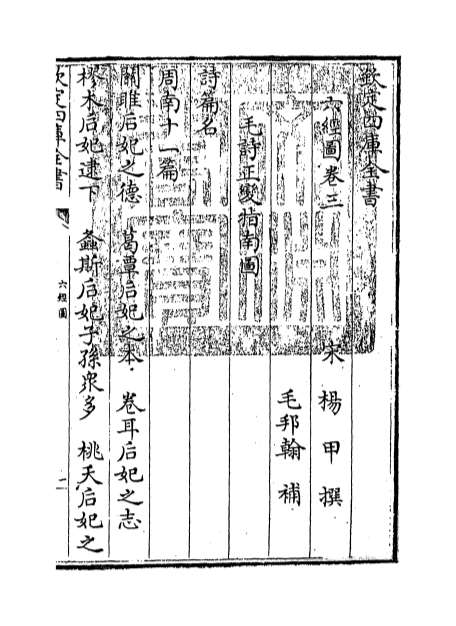 欽定四庫全書
六經圖卷三
宋 楊甲 撰
毛邦翰 補
毛詩正變指南圖
詩篇名
周南十一篇
關雎后妃之德 葛覃后妃之本 卷耳后妃之志
樛木后妃逮下 螽斯后妃子孫衆多 桃夭后妃之
欽定四庫全書
六經圖
一